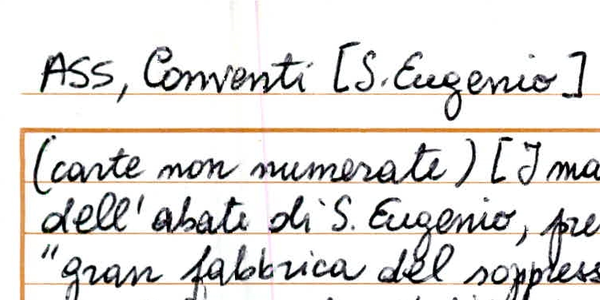 ASS, Conventi [S. Eugenio]
(carte non numerate) [I ma
dell'abate di S. Eugenio, pre
"gran fabbrica del soppress